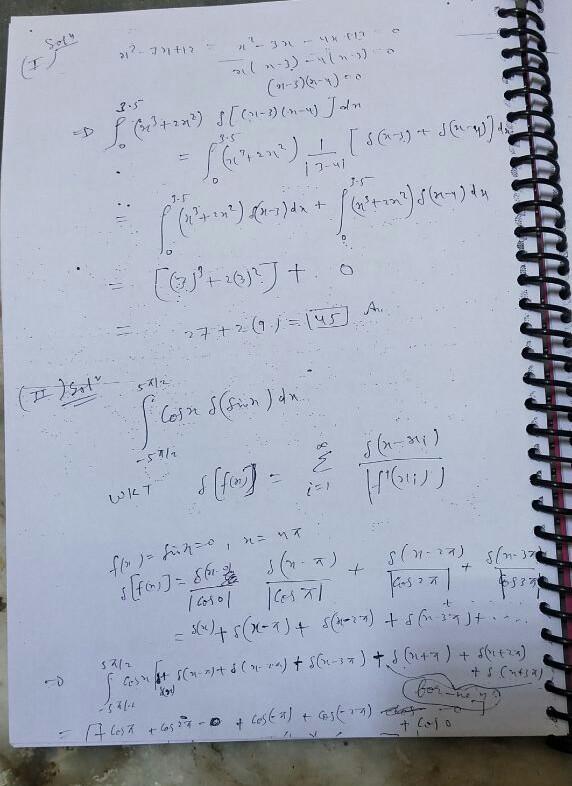 (I) Solⁿ
x² - 7x + 12 = x² - 3x - 4x + 12 = 0
x(x-3) - 4(x-3) = 0
(x-3)(x-4) = 0
⇒ ∫₀^3.5 (x³+2x²) δ[(x-3)(x-4)] dx
= ∫₀^3.5 (x³+2x²) 1/|3-4| [δ(x-3) + δ(x-4)] dx
= ∫₀^3.5 (x³+2x²) δ(x-3) dx + ∫₀^3.5 (x³+2x²) δ(x-4) dx
= [(3)³ + 2(3)²] + 0
= 27 + 2(9) = 45 An.
(II) Solⁿ
∫_{-5π/2}^{5π/2} Cosx δ(sinx) dx
WKT δ[f(x)] = Σ_{i=1}^∞ δ(x-xi)/|f'(xi)|
f(x) = sinx = 0, x = nπ
δ[f(x)] = δ(x-0)/|cos0| δ(x-π)/|cosπ| + δ(x-2π)/|cos2π| + δ(x-3π)/|cos3π| +
= δ(x) + δ(x-π) + δ(x-2π) + δ(x-3π) + ....
⇒ ∫_{-5π/2}^{5π/2} Cosx [δ(x) + δ(x-π) + δ(x-2π) + δ(x-3π) + δ(x+π) + δ(x+2π) + δ(x+3π)
for -ve
= [+ cosπ + cos2π - 0 + cos(-π) + cos(-2π) - 0] + cos0